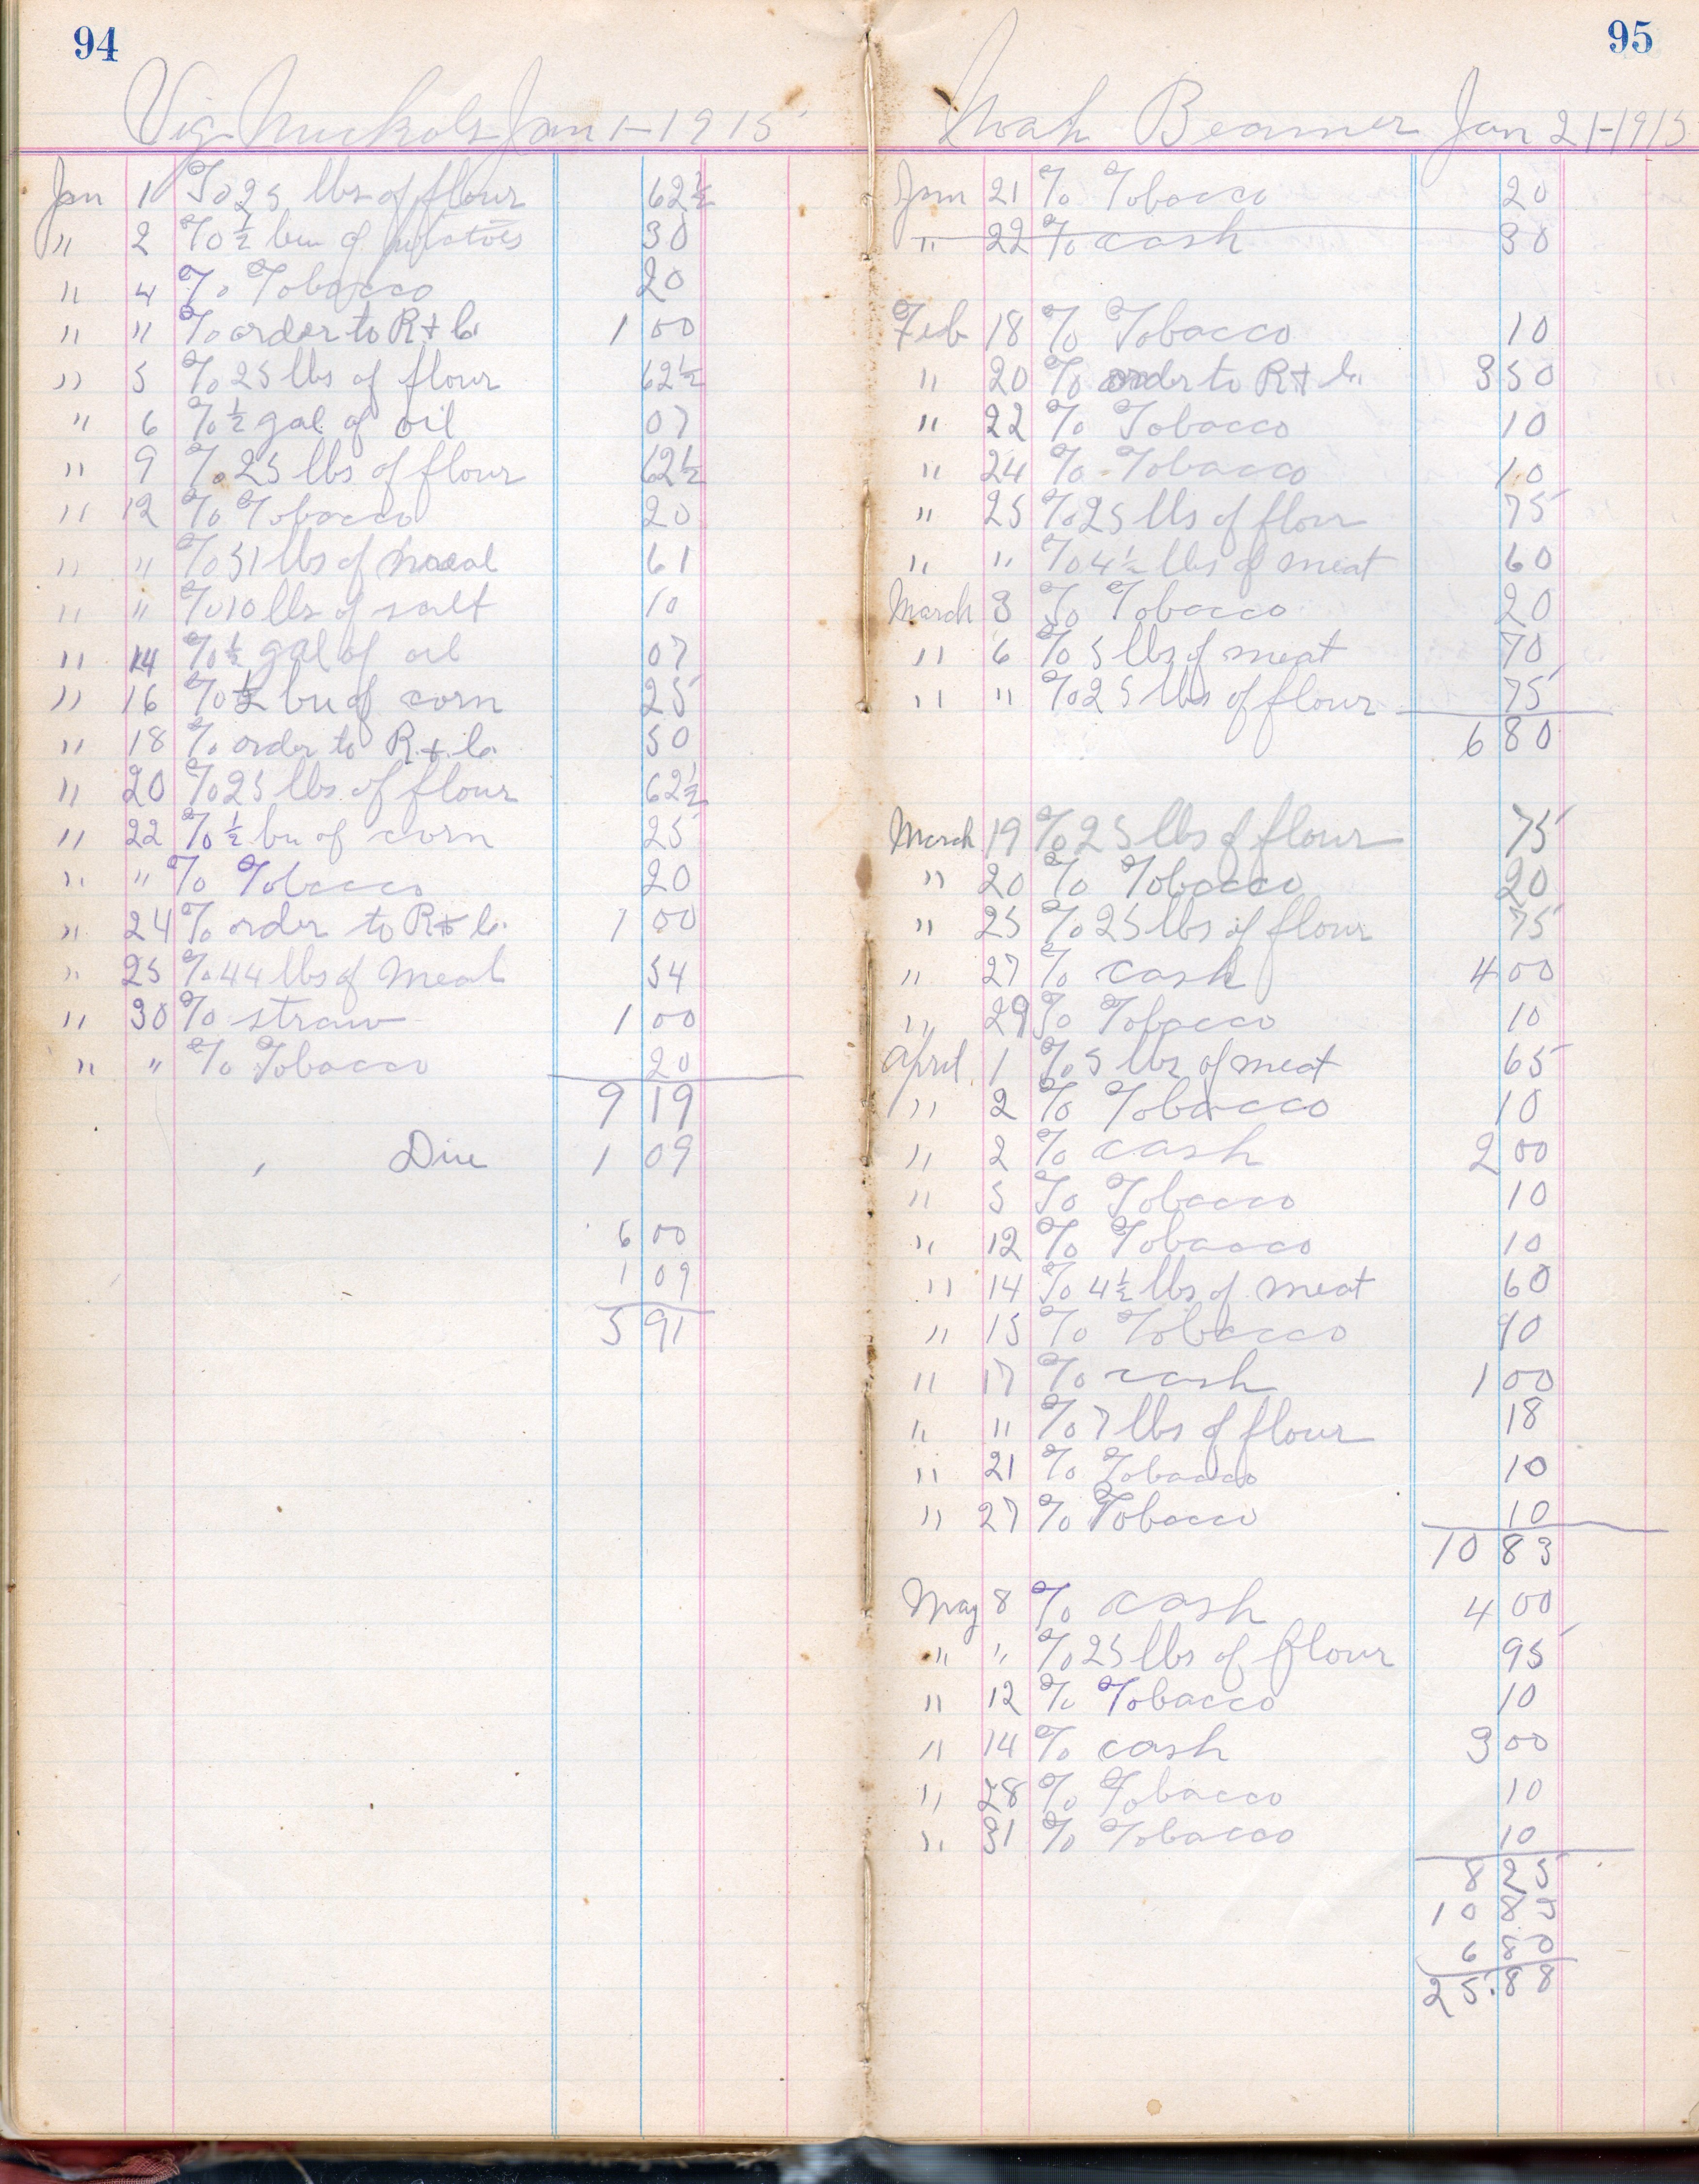 94
Vig Nuckols Jan 1-1915
Jan 1 To 25 lbs of flour 62½
" 2 To ½ bu of potatoes 30
" 4 To Tobacco 20
" " To order to R + Co. 1 00
" 5 To 25 lbs of flour 62½
" 6 To ½ gal of oil 07
" 9 To 25 lbs of flour 62½
" 12 To Tobacco 20
" " To 51 lbs of meal 61
" " To 10 lbs of salt 10
" 14 To ½ gal of oil 07
" 16 To ½ bu of corn 25
" 18 To order to R + Co. 50
" 20 To 25 lbs of flour 62½
" 22 To ½ bu of corn 25
" " To Tobacco 20
" 24 To order to R + Co. 1 00
" 25 To 44 lbs of meal 54
" 30 To straw 1 00
" " To Tobacco 20
9 19
Due 1 09
6 00
1 09
5 91
95
Noah Beamer Jan 21-1915
Jan 21 To Tobacco 20
" 22 To cash 30
Feb 18 To Tobacco 10
" 20 To order to R + Co. 3 50
" 22 To Tobacco 10
" 24 To Tobacco 10
" 25 To 25 lbs of flour 75
" " To 4½ lbs of meat 60
March 3 To Tobacco 20
" 6 To 5 lbs of meat 70
" " To 25 lbs of flour 75
6 80
March 19 To 25 lbs of flour 75
" 20 To Tobacco 20
" 25 To 25 lbs of flour 75
" 27 To cash 4 00
" 29 To Tobacco 10
April 1 To 5 lbs of meat 65
" 2 To Tobacco 10
" 2 To cash 2 00
" 5 To Tobacco 10
" 12 To Tobacco 10
" 14 To 4½ lbs of meat 60
" 15 To Tobacco 10
" 17 To cash 1 00
" " To 7 lbs of flour 18
" 21 To Tobacco 10
" 27 To Tobacco 10
10 83
May 8 To cash 4 00
" " To 25 lbs of flour 95
" 12 To Tobacco 10
" 14 To cash 3 00
" 28 To Tobacco 10
" 31 To Tobacco 10
8 25
10 83
6 80
25.88